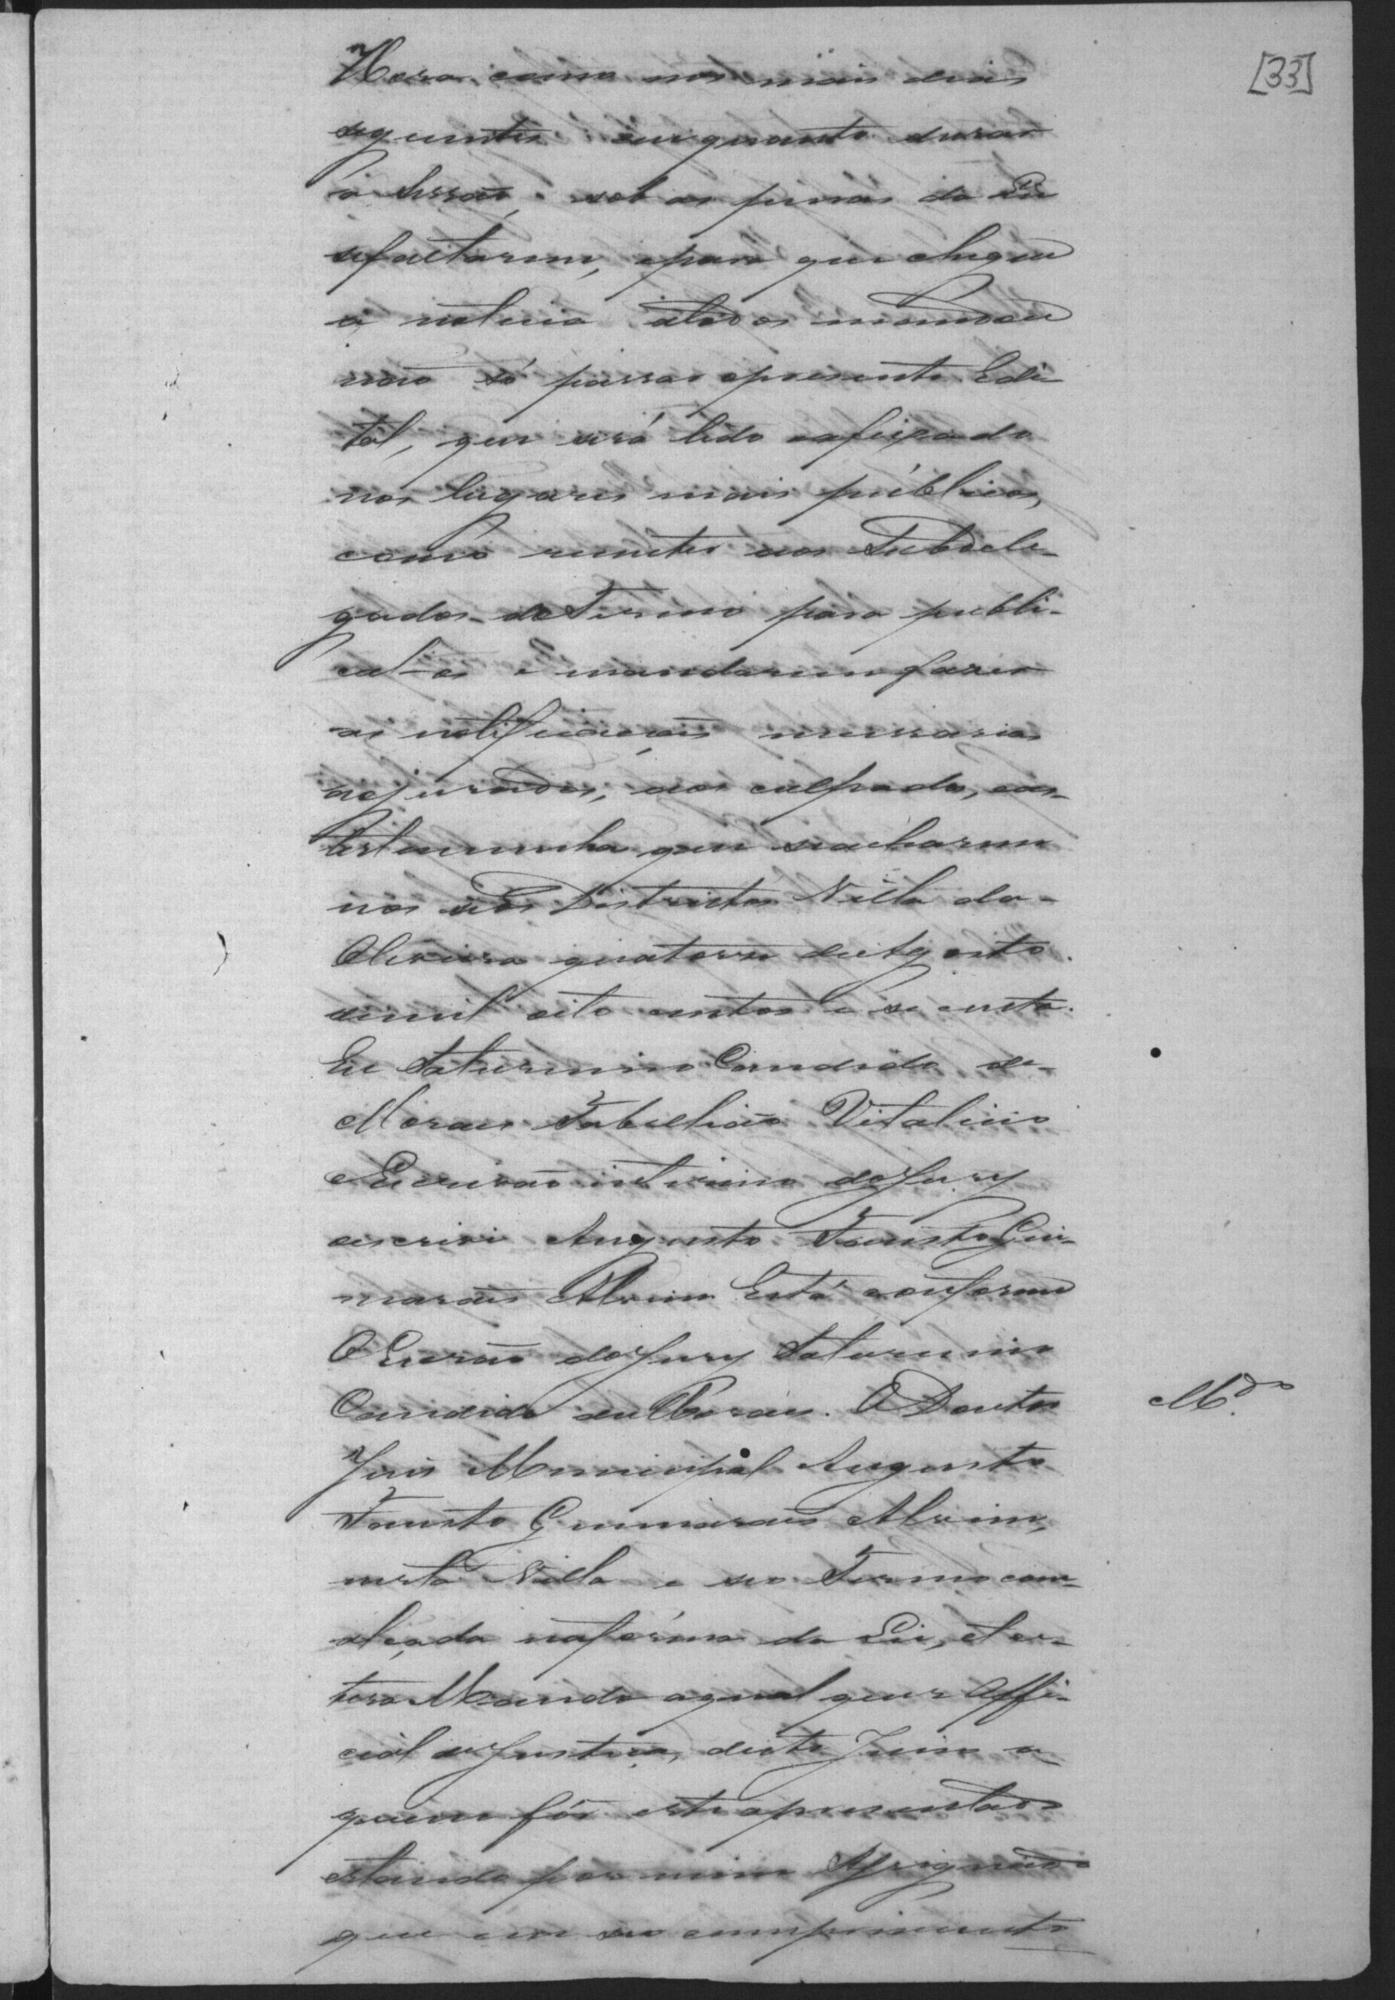 [33]
Hora como nos mais dias
seguintes emquanto durar
a Sessão, sob as penas da Lei
sefaltarem, epara que chegue
a noticia atodos mandou
não só passar opresente Edi-
tal, que será lido eafixado
nos lugares mais publicos,
como remeter aos Subdele-
gados do Termo para publi-
cal-os e mandarem fazer
as notificaçoens necessarias
aos jurados, aos culpados, eas
testemunha que seacharem
nos seos Districtos Villa da
Oliveira quatorze deAgosto
demil oito centos e secenta.
Eu Saturnino Candido de
Moraes Tabelliaõ Vitalicio
eEscrivão interino doJury
oescrivi Augusto Fausto Gui-
maraẽs Alvim Está conforme
OEscrivão doJury Saturnino
Candido deMoraes. ODoutor
Md.º
Juis Municipal Augusto
Fausto Guimaraẽs Alvim,
nesta Villa e seo Termo com
alçada naforma da Lei, etce-
tera Mando aqual quer Offi-
cial deJustiça, deste Juizo a
quem fôr este apresentado
estando por mim Assignado
que em seo cumprimento